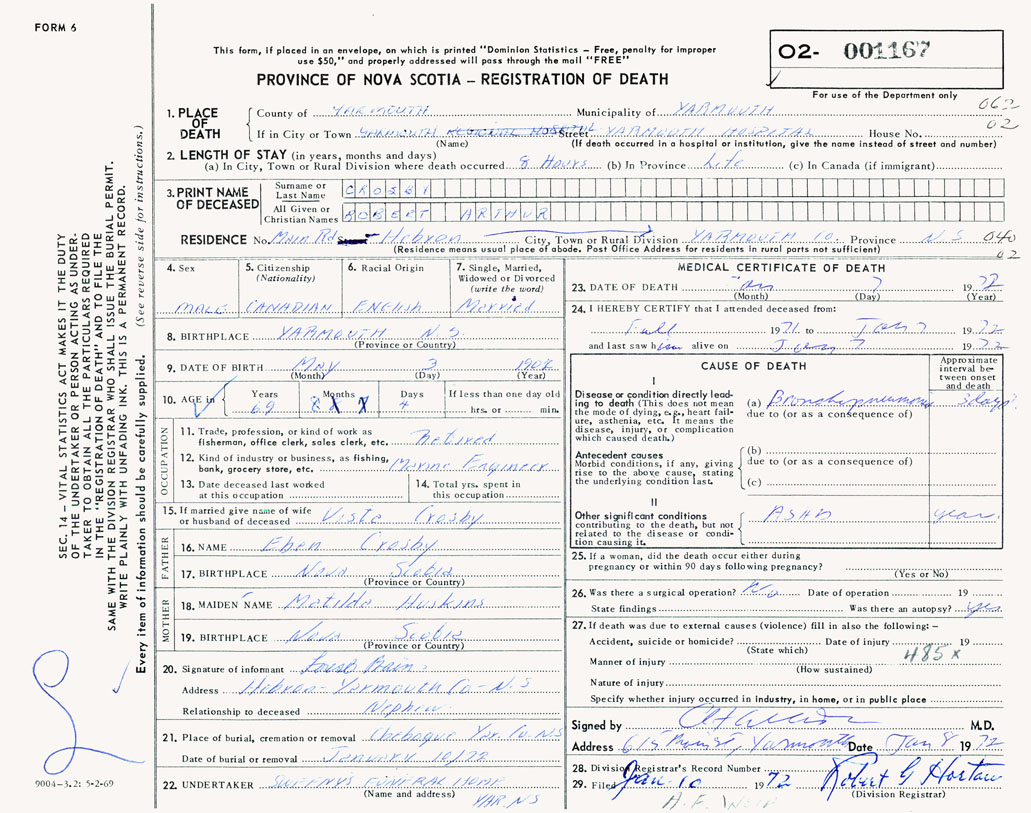 FORM 6
This form, if placed in an envelope, on which is printed "Dominion Statistics – Free, penalty for improper
use $50," and properly addressed will pass through the mail "FREE"
PROVINCE OF NOVA SCOTIA – REGISTRATION OF DEATH
02- 001167
For use of the Department only
062
02
1. PLACE OF DEATH
County of YARMOUTH Municipality of YARMOUTH
If in City or Town YARMOUTH REGIONAL HOSPITAL Street YARMOUTH HOSPITAL House No.
(Name) (If death occurred in a hospital or institution, give the name instead of street and number)
2. LENGTH OF STAY (in years, months and days)
(a) In City, Town or Rural Division where death occurred 8 Hours (b) In Province Life (c) In Canada (if immigrant)
3. PRINT NAME OF DECEASED
Surname or Last Name CROSBY
All Given or Christian Names ROBERT ARTHUR
RESIDENCE No. Main Rd Street Hebron City, Town or Rural Division YARMOUTH Co. Province N S 040
(Residence means usual place of abode. Post Office Address for residents in rural parts not sufficient) 02
4. Sex MALE
5. Citizenship (Nationality) CANADIAN
6. Racial Origin ENGLISH
7. Single, Married, Widowed or Divorced (write the word) Married
8. BIRTHPLACE YARMOUTH N.S.
(Province or Country)
9. DATE OF BIRTH May 3 1902
(Month) (Day) (Year)
10. AGE in Years 69 Months 8 Days 4 If less than one day old hrs. or min.
OCCUPATION
11. Trade, profession or kind of work as
fisherman, office clerk, sales clerk, etc. Retired
12. Kind of industry or business, as fishing,
bank, grocery store, etc. Marine Engineer
13. Date deceased last worked
at this occupation
14. Total yrs. spent in
this occupation
15. If married give name of wife
or husband of deceased Crosby
FATHER
16. NAME Eben Crosby
17. BIRTHPLACE Nova Scotia
(Province or Country)
MOTHER
18. MAIDEN NAME Matilda Huskins
19. BIRTHPLACE Nova Scotia
(Province or Country)
20. Signature of informant
Address Hebron - Yarmouth Co - N S
Relationship to deceased Nephew
21. Place of burial, cremation or removal Chebogue Yar. Co. NS
Date of burial or removal January 10/72
22. UNDERTAKER SWEENY'S FUNERAL HOME
(Name and address) YAR. N S
MEDICAL CERTIFICATE OF DEATH
23. DATE OF DEATH Jan 7 1972
(Month) (Day) (Year)
24. I HEREBY CERTIFY that I attended deceased from:
Fall 1971 to Jan 7 1972
and last saw him alive on Jan 7 1972
CAUSE OF DEATH
Approximate interval between onset and death
I
Disease or condition directly leading
to death (This does not mean
the mode of dying, e.g., heart failure,
asthenia, etc. It means the
disease, injury, or complication
which caused death.)
(a) Bronchopneumonia 3 days
due to (or as a consequence of)
Antecedent causes
Morbid conditions, if any, giving
rise to the above cause, stating
the underlying condition last.
(b)
due to (or as a consequence of)
(c)
II
Other significant conditions
contributing to the death, but not
related to the disease or condition
causing it.
ASHD years
25. If a woman, did the death occur either during
pregnancy or within 90 days following pregnancy?
(Yes or No)
26. Was there a surgical operation? No Date of operation 19
State findings Was there an autopsy? yes
27. If death was due to external causes (violence) fill in also the following: –
Accident, suicide or homicide? Date of injury 19
(State which) 485x
Manner of injury
(How sustained)
Nature of injury
Specify whether injury occurred in industry, in home, or in public place
Signed by M.D.
Address Yarmouth Date Jan 8 1972
28. Division Registrar's Record Number
29. Filed Jan. 10 1972 Robert G Horton
(Division Registrar)
SEC. 14 – VITAL STATISTICS ACT MAKES IT THE DUTY
OF THE UNDERTAKER OR PERSON ACTING AS UNDERTAKER
TO OBTAIN ALL THE PARTICULARS REQUIRED
IN THE "REGISTRATION OF DEATH" AND TO FILE THE
SAME WITH THE DIVISION REGISTRAR WHO SHALL ISSUE THE BURIAL PERMIT.
WRITE PLAINLY WITH UNFADING INK. THIS IS A PERMANENT RECORD.
Every item of information should be carefully supplied. (See reverse side for instructions.)
9004–3.2: 5-2-69